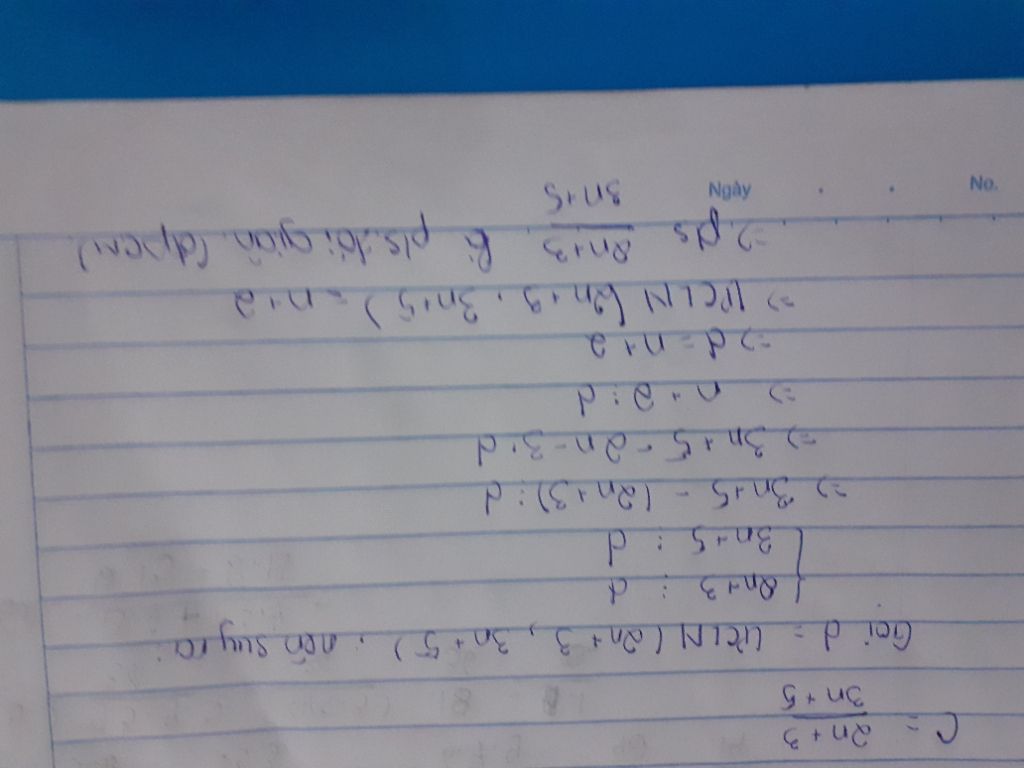 C = 2n+3 / 3n+5
Gọi d = ƯCLN (2n+3, 3n+5); nên suy ra:
{ 2n+3 ⋮ d
{ 3n+5 ⋮ d
=> 3n+5 - (2n+3) ⋮ d
=> 3n+5 - 2n - 3 ⋮ d
=> n + 2 ⋮ d
=> d = n+2
=> ƯCLN (2n+3, 3n+5) = n+2
=> pls 2n+3 / 3n+5 là pls tối giản (đpcm).
Ngày . . No.